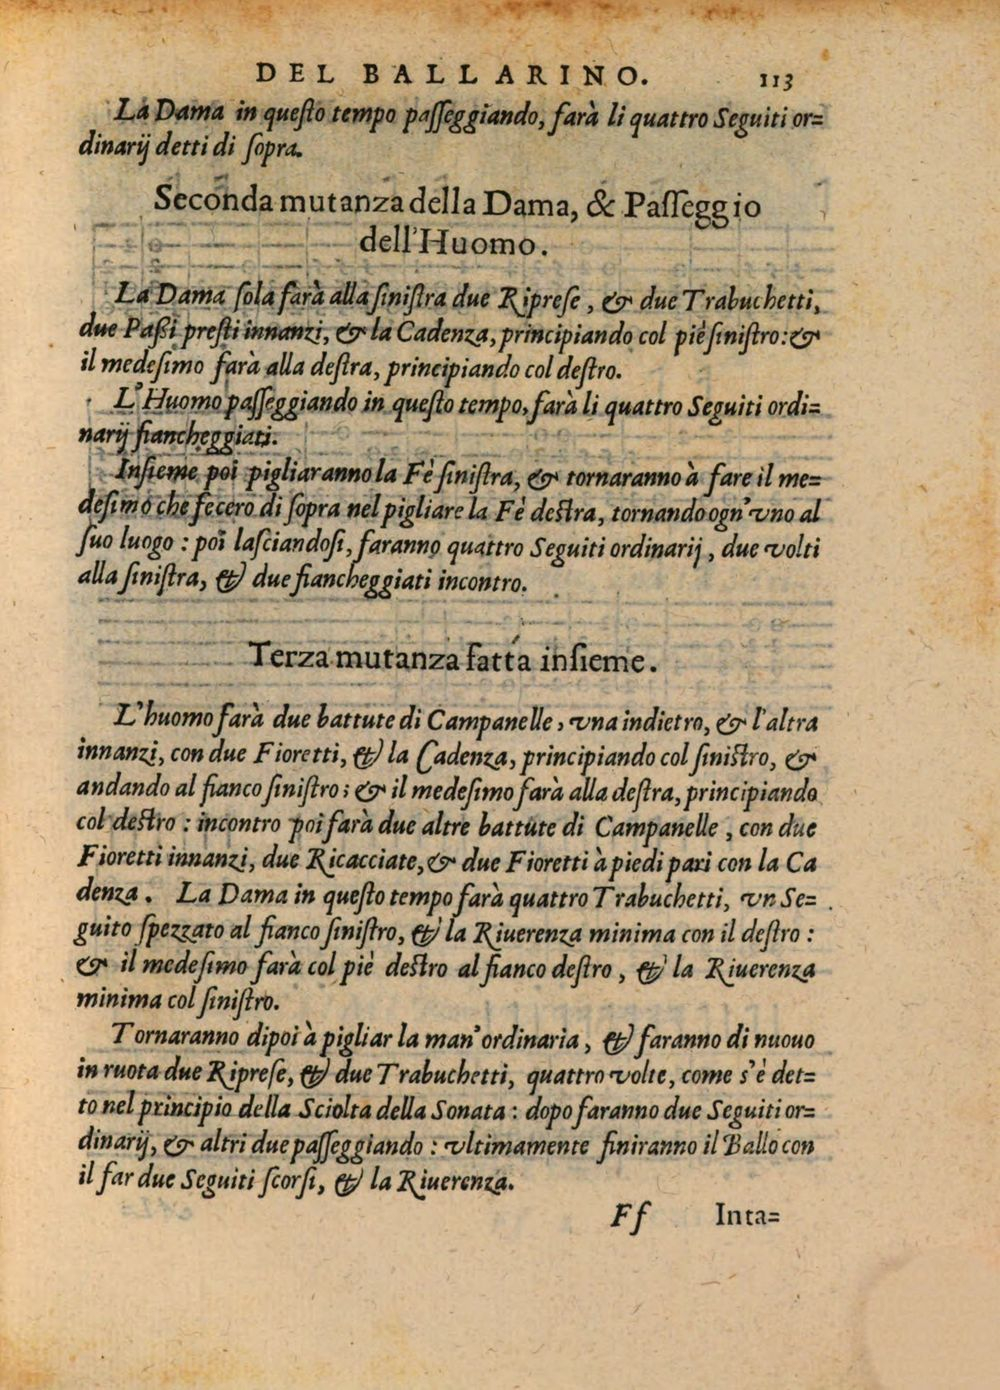 DEL BALLARINO. 113
La Dama in queſto tempo paſſeggiando, farà li quattro Seguiti or=
dinarij detti di ſopra.
Seconda mutanza della Dama, & Paſſeggio
dell'Huomo.
La Dama ſola farà alla ſiniſtra due Ripreſe, & due Trabuchetti,
due Paßi preſti innanzi, & la Cadenza, principiando col piè ſiniſtro: &
il medeſimo farà alla deſtra, principiando col deſtro.
L'Huomo paſſeggiando in queſto tempo, farà li quattro Seguiti ordi=
narij fiancheggiati.
Inſieme poi pigliaranno la Fè ſiniſtra, & tornaranno à fare il me=
deſimo che fecero di ſopra nel pigliare la Fè deſtra, tornando ogn'vno al
ſuo luogo: poi laſciandoſi, faranno quattro Seguiti ordinarij, due volti
alla ſiniſtra, & due fiancheggiati incontro.
Terza mutanza fatta inſieme.
L'huomo farà due battute di Campanelle, vna indietro, & l'altra
innanzi, con due Fioretti, & la Cadenza, principiando col ſiniſtro, &
andando al fianco ſiniſtro; & il medeſimo farà alla deſtra, principiando
col deſtro: incontro poi farà due altre battute di Campanelle, con due
Fioretti innanzi, due Ricacciate, & due Fioretti à piedi pari con la Ca
denza. La Dama in queſto tempo farà quattro Trabuchetti, vn Se=
guito ſpezzato al fianco ſiniſtro, & la Riuerenza minima con il deſtro:
& il medeſimo farà col piè deſtro al fianco deſtro, & la Riuerenza
minima col ſiniſtro.
Tornaranno dipoi à pigliar la man'ordinaria, & faranno di nuouo
in ruota due Ripreſe, & due Trabuchetti, quattro volte, come s'è det=
to nel principio della Sciolta della Sonata: dopo faranno due Seguiti or=
dinarij, & altri due paſſeggiando: vltimamente finiranno il Ballo con
il far due Seguiti ſcorſi, & la Riuerenza.
Ff Inta=